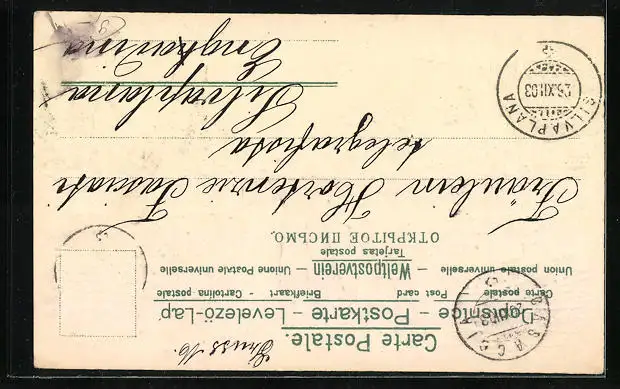 Gruss
Carte Postale.
Dopisnice – Postkarte – Levelező-Lap
Carte postale – Post card – Briefkaart – Cartolina postale
Union postale universelle – Weltpostverein – Unione Postale universelle
Tarjetas postale
ОТКРЫТОЕ ПИСЬМО.
Fräulein Hortensie Fasciati
telegrafista
Silvaplana
Engadina
SILVAPLANA
26.XII.03
CASACCIA